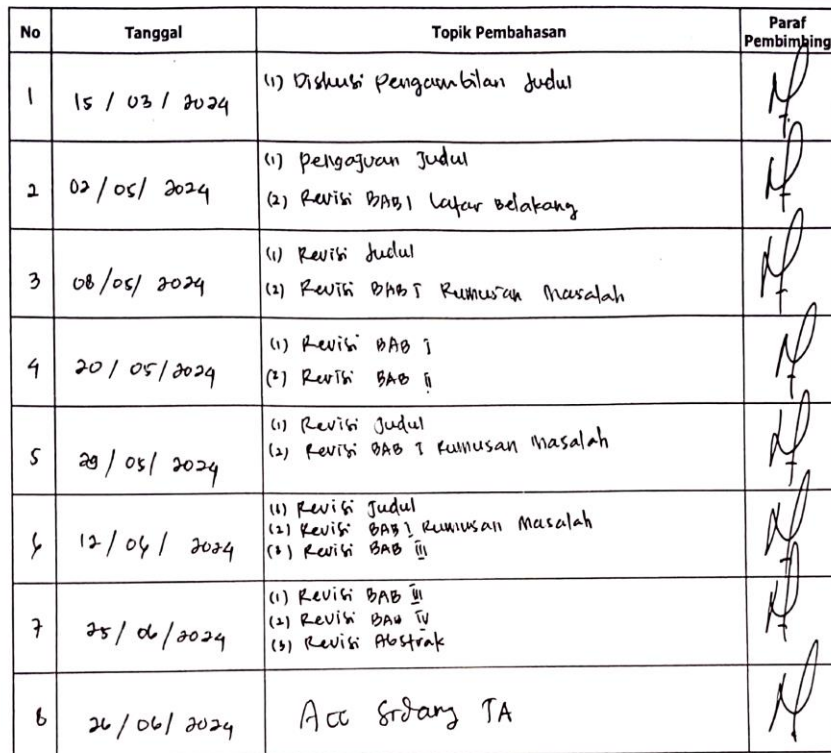 No Tanggal Topik Pembahasan Paraf Pembimbing
1 15 / 03 / 2024 (1) Diskusi Pengambilan Judul
2 02 / 05 / 2024 (1) Pengajuan Judul
(2) Revisi BAB I Latar Belakang
3 08 / 05 / 2024 (1) Revisi Judul
(2) Revisi BAB I Rumusan Masalah
4 20 / 05 / 2024 (1) Revisi BAB I
(2) Revisi BAB II
5 29 / 05 / 2024 (1) Revisi Judul
(2) Revisi BAB I Rumusan Masalah
6 12 / 06 / 2024 (1) Revisi Judul
(2) Revisi BAB I Rumusan Masalah
(3) Revisi BAB III
7 25 / 06 / 2024 (1) Revisi BAB III
(2) Revisi BAB IV
(3) Revisi Abstrak
8 26 / 06 / 2024 Acc Sidang TA